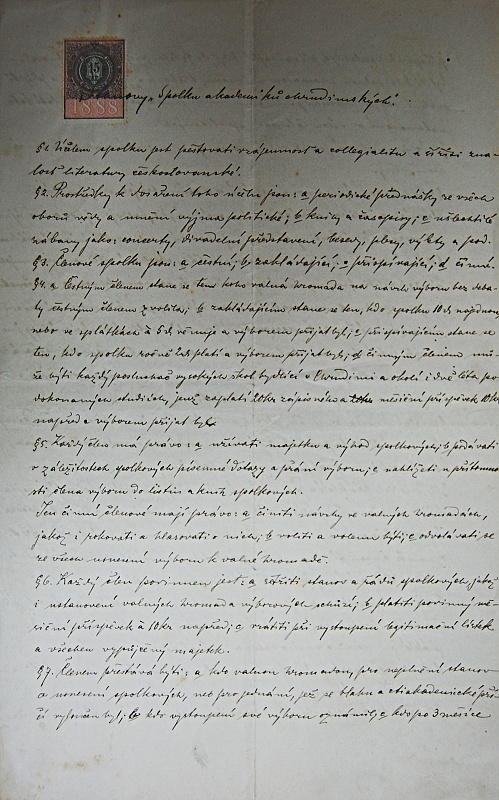 1888
Stanovy „Spolku akademiků chrudimských“.
§1. Účelem spolku jest pěstovati vzájemnost a collegialitu a šířiti zna-
lost literatury československé.
§2. Prostředky k dosažení toho účelu jsou: a periodické přednášky ze všech
oborů vědy a umění vyjma politické; b knihy a časopisy; c ušlechtilé
zábavy jako: concerty, divadelní představení, besedy, plesy, výlety a pod.
§3. Členové spolku jsou: a čestní; b zakládající; c přispívající; d činní.
§4. a Čestným členem stane se ten koho valná hromada na návrh výboru bez deba-
ty čestným členem zvolila; b zakládajícím stane se ten, kdo spolku 10 zl. najednou
nebo ve splátkách à 5 zl. věnuje a výborem přijat byl; c přispívajícím stane se
ten, kdo spolku ročně platí a výborem přijat byl; d činným členem mů-
že býti každý posluchač vysokých škol bydlící v Chrudimi a okolí i dvě léta po
dokonaných studiích, jenž zaplatí 20 kr zápisného a měsíční příspěvek 10 kr
napřed a výborem přijat byl.
§5. Každý člen má právo: a užívati majetku a výhod spolkových; b podávati
v záležitostech spolkových písemné dotazy a přání výboru; c nahlížeti u přítomno-
sti člena výboru do listin a knih spolkových.
Jen činní členové mají právo: a činiti návrhy ve valných hromadách,
jakož i rokovati a hlasovati o nich; b voliti a volenu býti; c odvolávati se
ze všech usnesení výboru k valné hromadě.
§6. Každý člen povinnen jest: a šetřiti stanov a řádů spolkových, jakož
i ustanovení valných hromad a výborových schůzí; b platiti povinný mě-
síční příspěvek à 10 kr napřed; c vrátiti při vystoupení legitimační lístek
a všechen vypůjčený majetek.
§7. Členem přestává býti: a kdo valnou hromadou, pro neplnění stanov
a usnesení spolkových, neb pro jednání, jež se a cti akademické pří-
čí vyloučen byl; b kdo vystoupení své výboru oznámil; c kdo po 3 měsíce